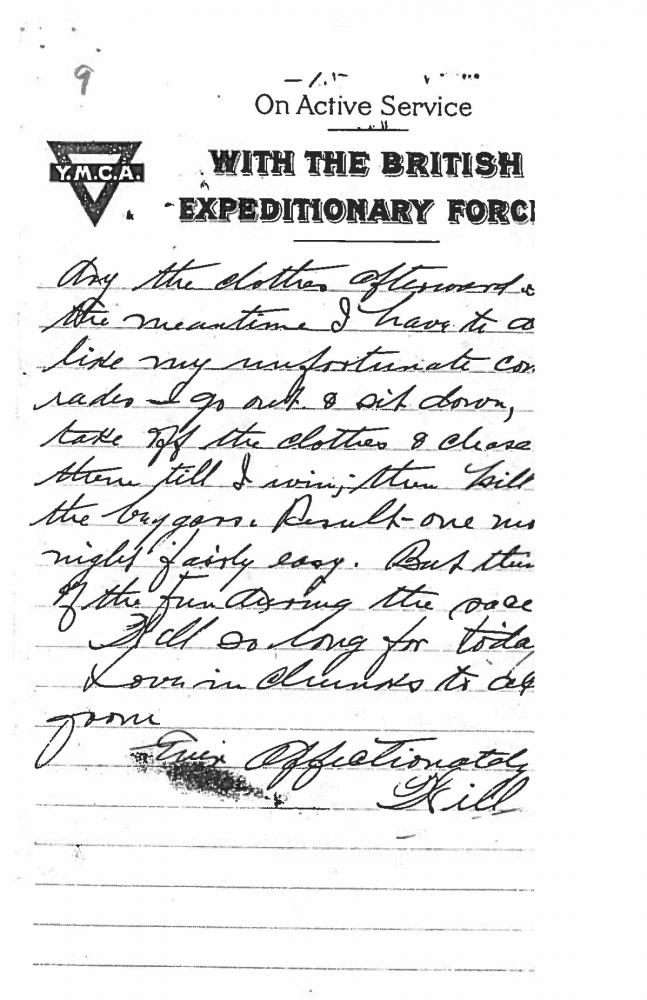 9
On Active Service
WITH THE BRITISH
Y.M.C.A.
EXPEDITIONARY FORC
dry the clothes afterward &
the meantime I have to do
like my unfortunate com
rades – I go out & sit down,
take off the clothes & chase
them till I win; then kill
the buggars. Result – one mo
night fairly easy. But then
of the fun during the race
Well so long for toda
Love in chunks to all
from
Ever Affectionately
Will